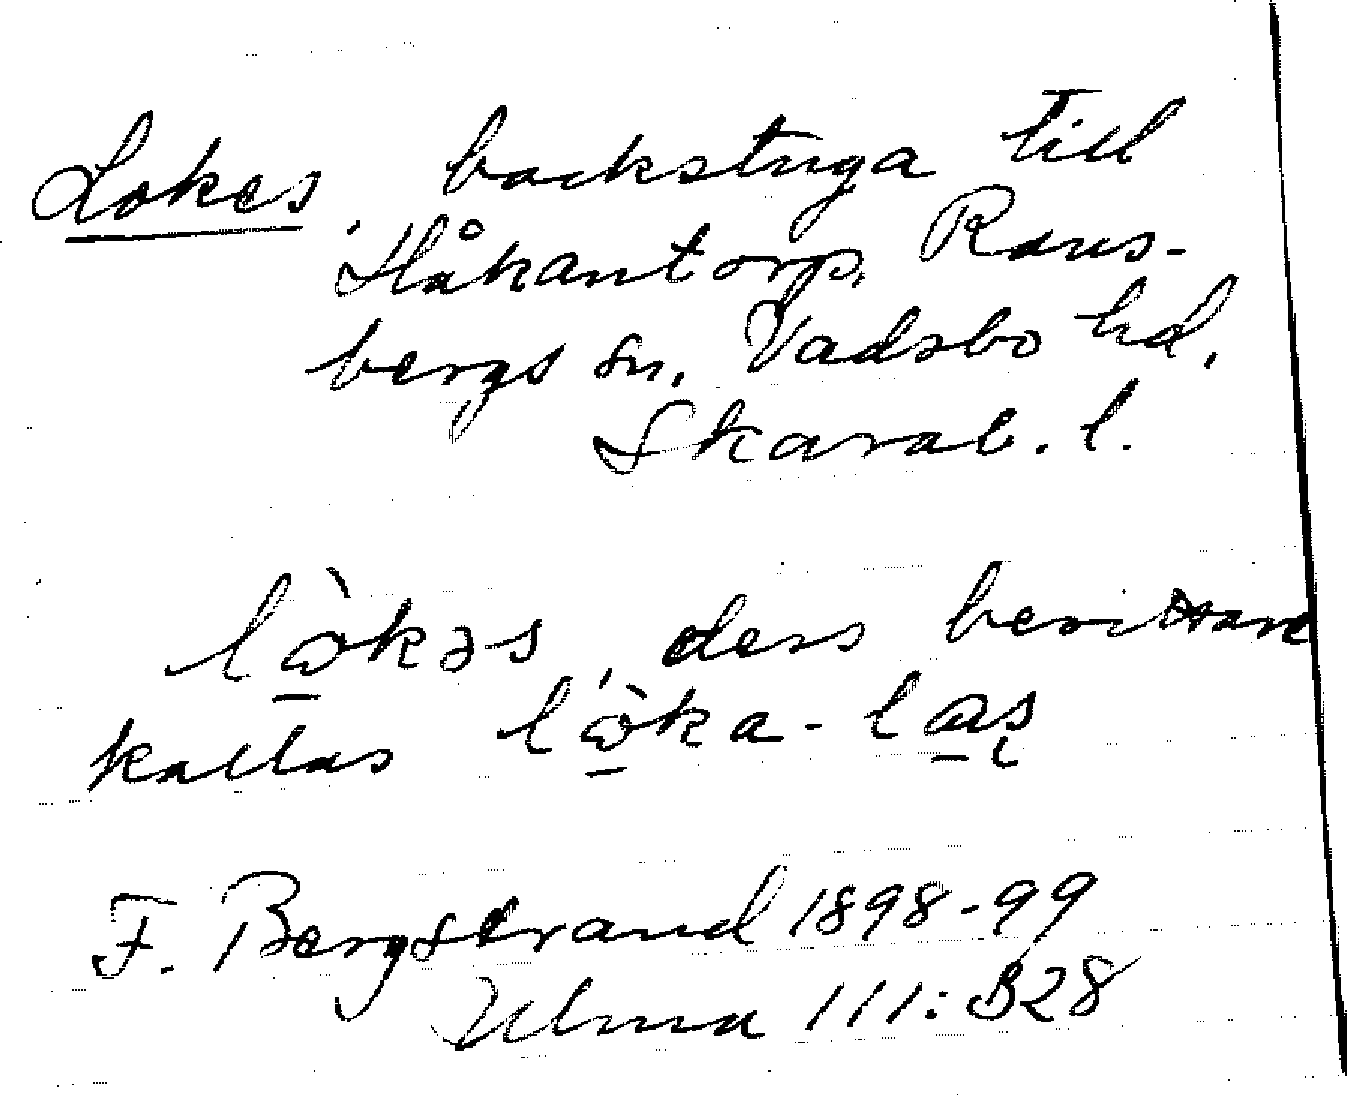 Lokes, backstuga till
Håkantorp, Rans-
bergs sn. Vadsbo hd,
Skarab. l.
lὼ̲kəs, dess
kallas lὼ̲ka-
F. Bergstrand 1898-99
Ulma 111:B28